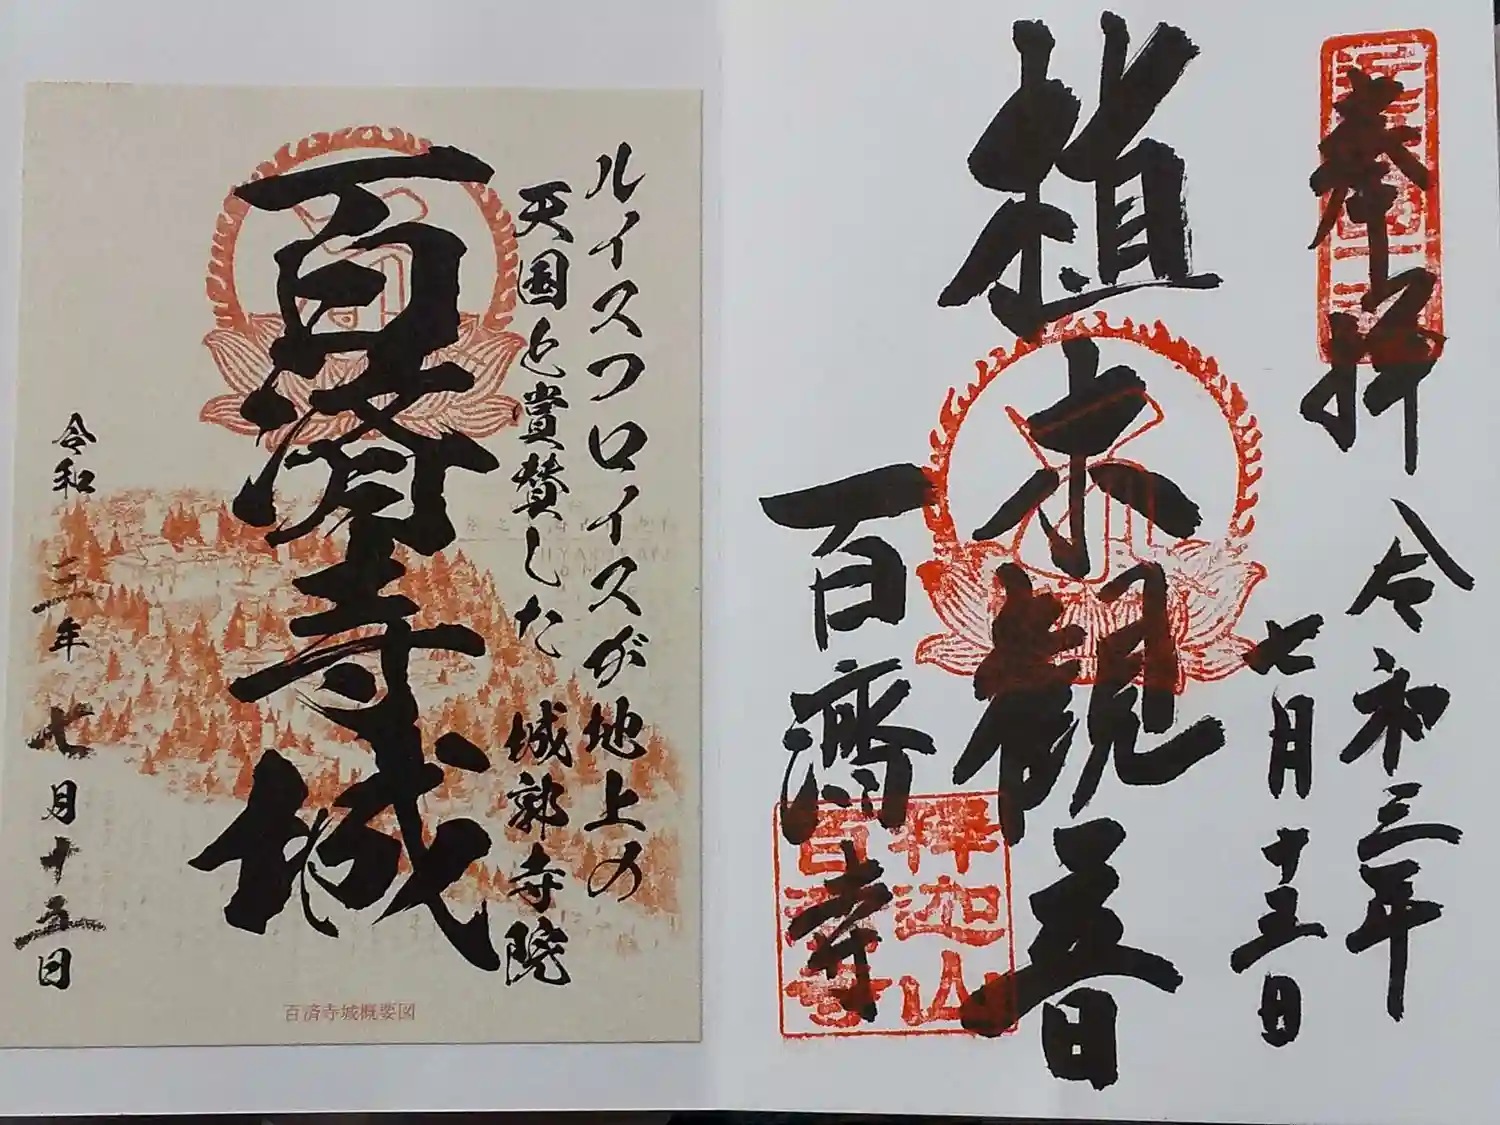 奉拝
令和三年
七月十五日
植木観音
百濟寺
釈迦山
百済寺
ルイスフロイスが地上の
天国と賞賛した 城郭寺院
百済寺城
令和三年七月十五日
百済寺城概要図